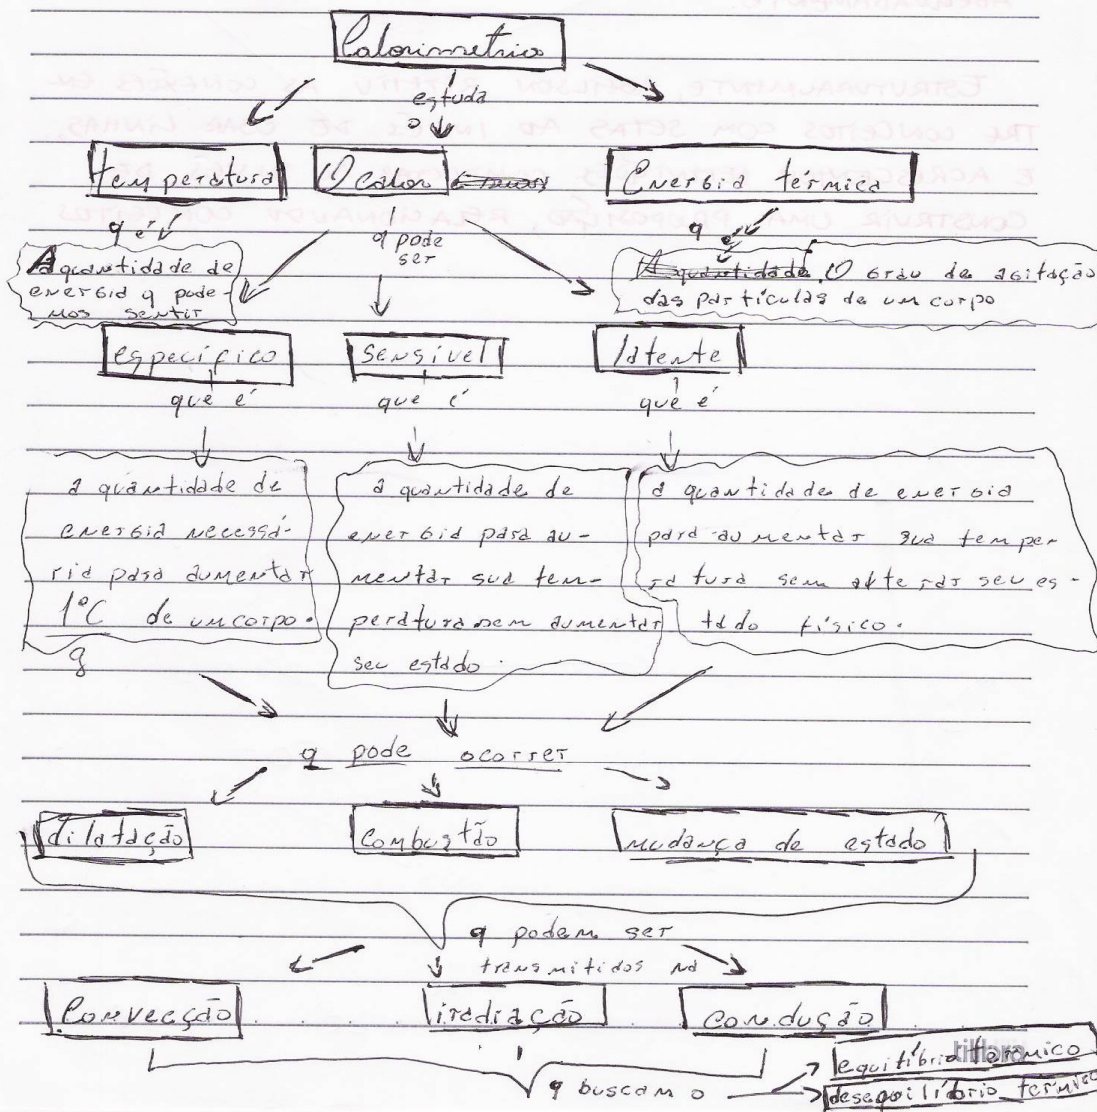 Calorimetria
estuda
o
temperatura
O calor
Energia térmica
q é
q pode
ser
q é
A quantidade de
energia q pode-
mos sentir
A quantidade O grau de agitação
das partículas de um corpo
específico
sensível
latente
que é
que é
que é
a quantidade de
energia necessá-
ria para aumentar
1°C de um corpo.
g
a quantidade de
energia para au-
mentar sua tem-
peratura sem aumentar
seu estado.
a quantidade de energia
para aumentar sua tempe-
ratura sem alterar seu es-
tado físico.
q pode ocorrer
dilatação
Combustão
mudança de estado
q podem ser
transmitidos na
Convecção
iradiação
condução
tilibra
q buscam o
equilíbrio térmico
desequilíbrio térmico